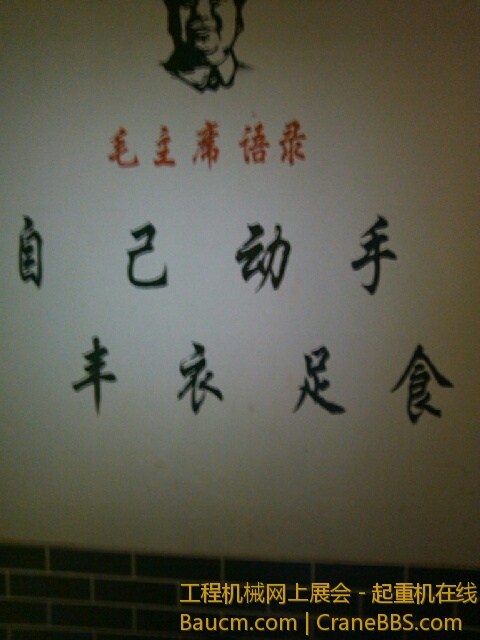 毛主席语录
自己动手
丰衣足食
工程机械网上展会 - 起重机在线
Baucm.com | CraneBBS.com